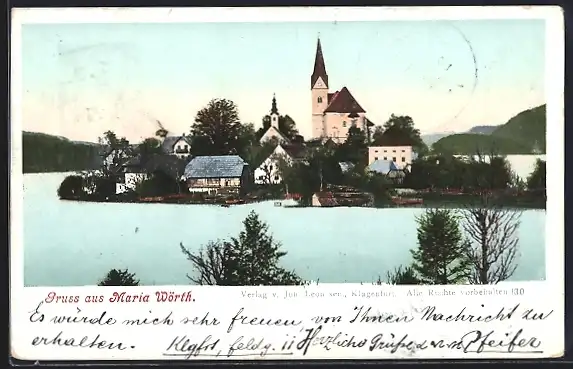 Gruss aus Maria Wörth.
Verlag v. Joh. Leon sen., Klagenfurt. Alle Rechte vorbehalten
Es würde mich sehr freuen, von Ihnen Nachricht zu
erhalten. Klgfrt, 11 Herzliche Grüße